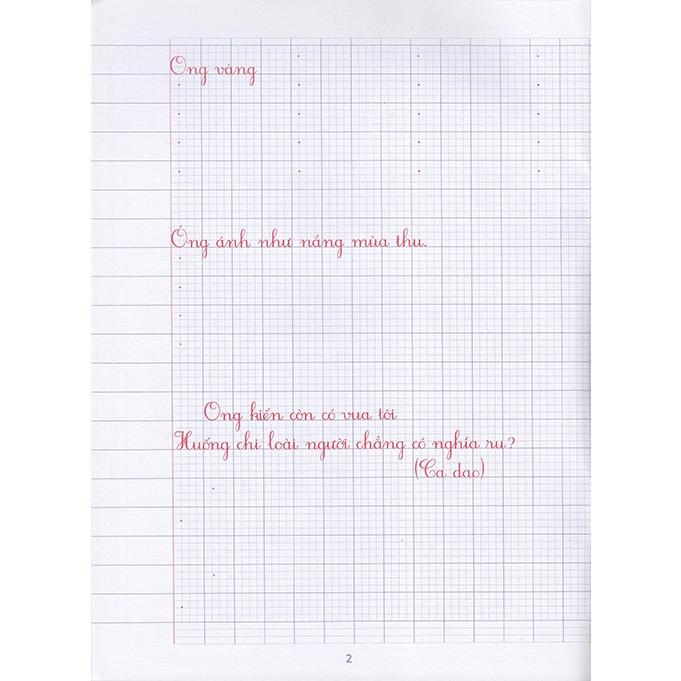 Ong vàng
Óng ánh như nắng mùa thu.
Ong kiến còn có vua tôi
Huống chi loài người chẳng có nghĩa ru?
(Ca dao)
2